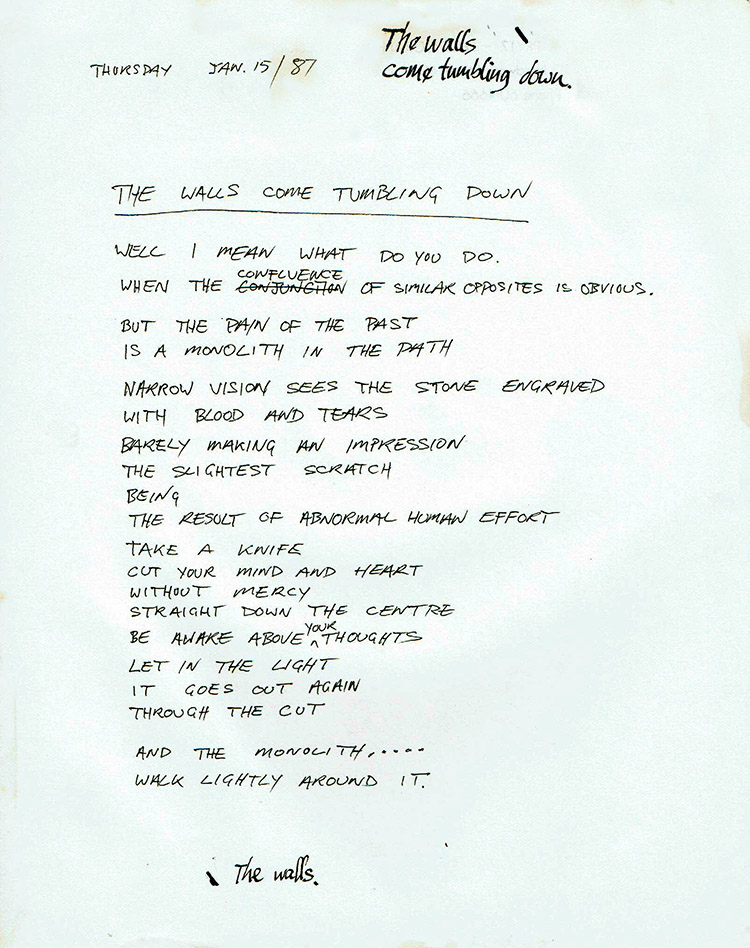 The walls
come tumbling down.
THURSDAY JAN. 15/87
THE WALLS COME TUMBLING DOWN
WELL I MEAN WHAT DO YOU DO.
CONFLUENCE
WHEN THE CONJUNCTION OF SIMILAR OPPOSITES IS OBVIOUS.
BUT THE PAIN OF THE PAST
IS A MONOLITH IN THE PATH
NARROW VISION SEES THE STONE ENGRAVED
WITH BLOOD AND TEARS
BARELY MAKING AN IMPRESSION
THE SLIGHTEST SCRATCH
BEING
THE RESULT OF ABNORMAL HUMAN EFFORT
TAKE A KNIFE
CUT YOUR MIND AND HEART
WITHOUT MERCY
STRAIGHT DOWN THE CENTRE
BE AWAKE ABOVE YOUR THOUGHTS
LET IN THE LIGHT
IT GOES OUT AGAIN
THROUGH THE CUT
AND THE MONOLITH,....
WALK LIGHTLY AROUND IT.
The walls.